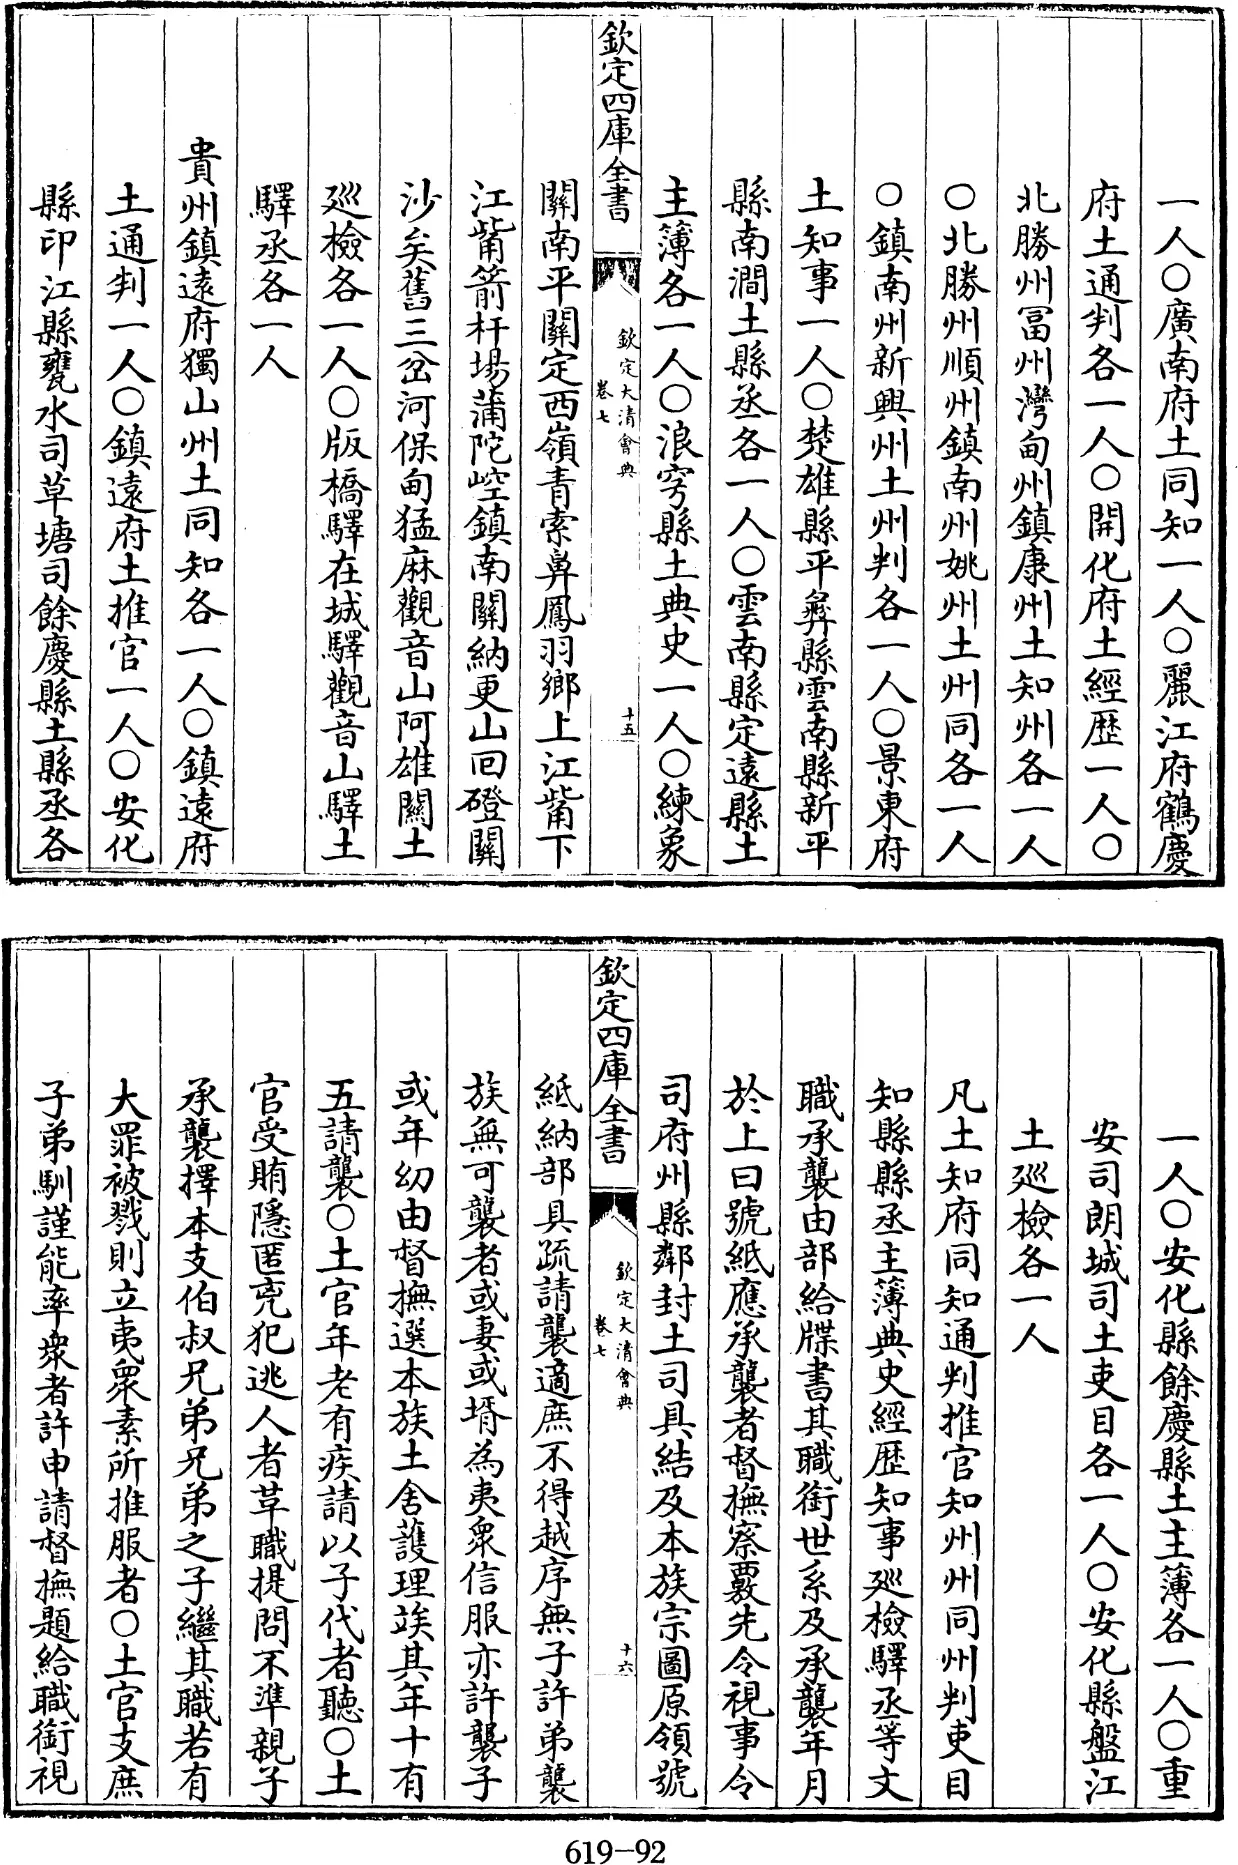 一人〇廣南府土同知一人〇麗江府鶴慶
府土通判各一人〇開化府土經歴一人〇
北勝州冨州灣甸州鎮康州土知州各一人
〇北勝州順州鎮南州姚州土州同各一人
〇鎮南州新興州土州判各一人〇景東府
土知事一人〇楚雄縣平彛縣雲南縣新平
縣南澗土縣丞各一人〇雲南縣定遠縣土
主簿各一人〇浪穹縣土典史一人〇練象
欽定四庫全書
欽定大清會典
卷七
十五
關南平關定西嶺青索鼻鳳羽鄉上江觜下
江觜箭杆場蒲陀崆鎮南關納更山回磴關
沙矣舊三岔河保甸猛麻觀音山阿雄關土
廵檢各一人〇版橋驛在城驛觀音山驛土
驛丞各一人
貴州鎮遠府獨山州土同知各一人〇鎮遠府
土通判一人〇鎮遠府土推官一人〇安化
縣印江縣甕水司草塘司餘慶縣土縣丞各
一人〇安化縣餘慶縣土主簿各一人〇重
安司朗城司土吏目各一人〇安化縣盤江
土廵檢各一人
凡土知府同知通判推官知州州同州判吏目
知縣縣丞主簿典史經歴知事廵檢驛丞等文
職承襲由部給牒書其職銜世系及承襲年月
於上曰號紙應承襲者督撫察覈先令視事令
司府州縣鄰封土司具結及本族宗圖原領號
欽定四庫全書
欽定大清會典
卷七
十六
紙納部具疏請襲適庶不得越序無子許弟襲
族無可襲者或妻或壻為夷衆信服亦許襲子
或年幼由督撫選本族土舍護理竢其年十有
五請襲〇土官年老有疾請以子代者聽〇土
官受賄隱匿兇犯逃人者革職提問不準親子
承襲擇本支伯叔兄弟兄弟之子繼其職若有
大罪被戮則立夷衆素所推服者〇土官支庶
子弟馴謹能率衆者許申請督撫題給職銜視
619-92